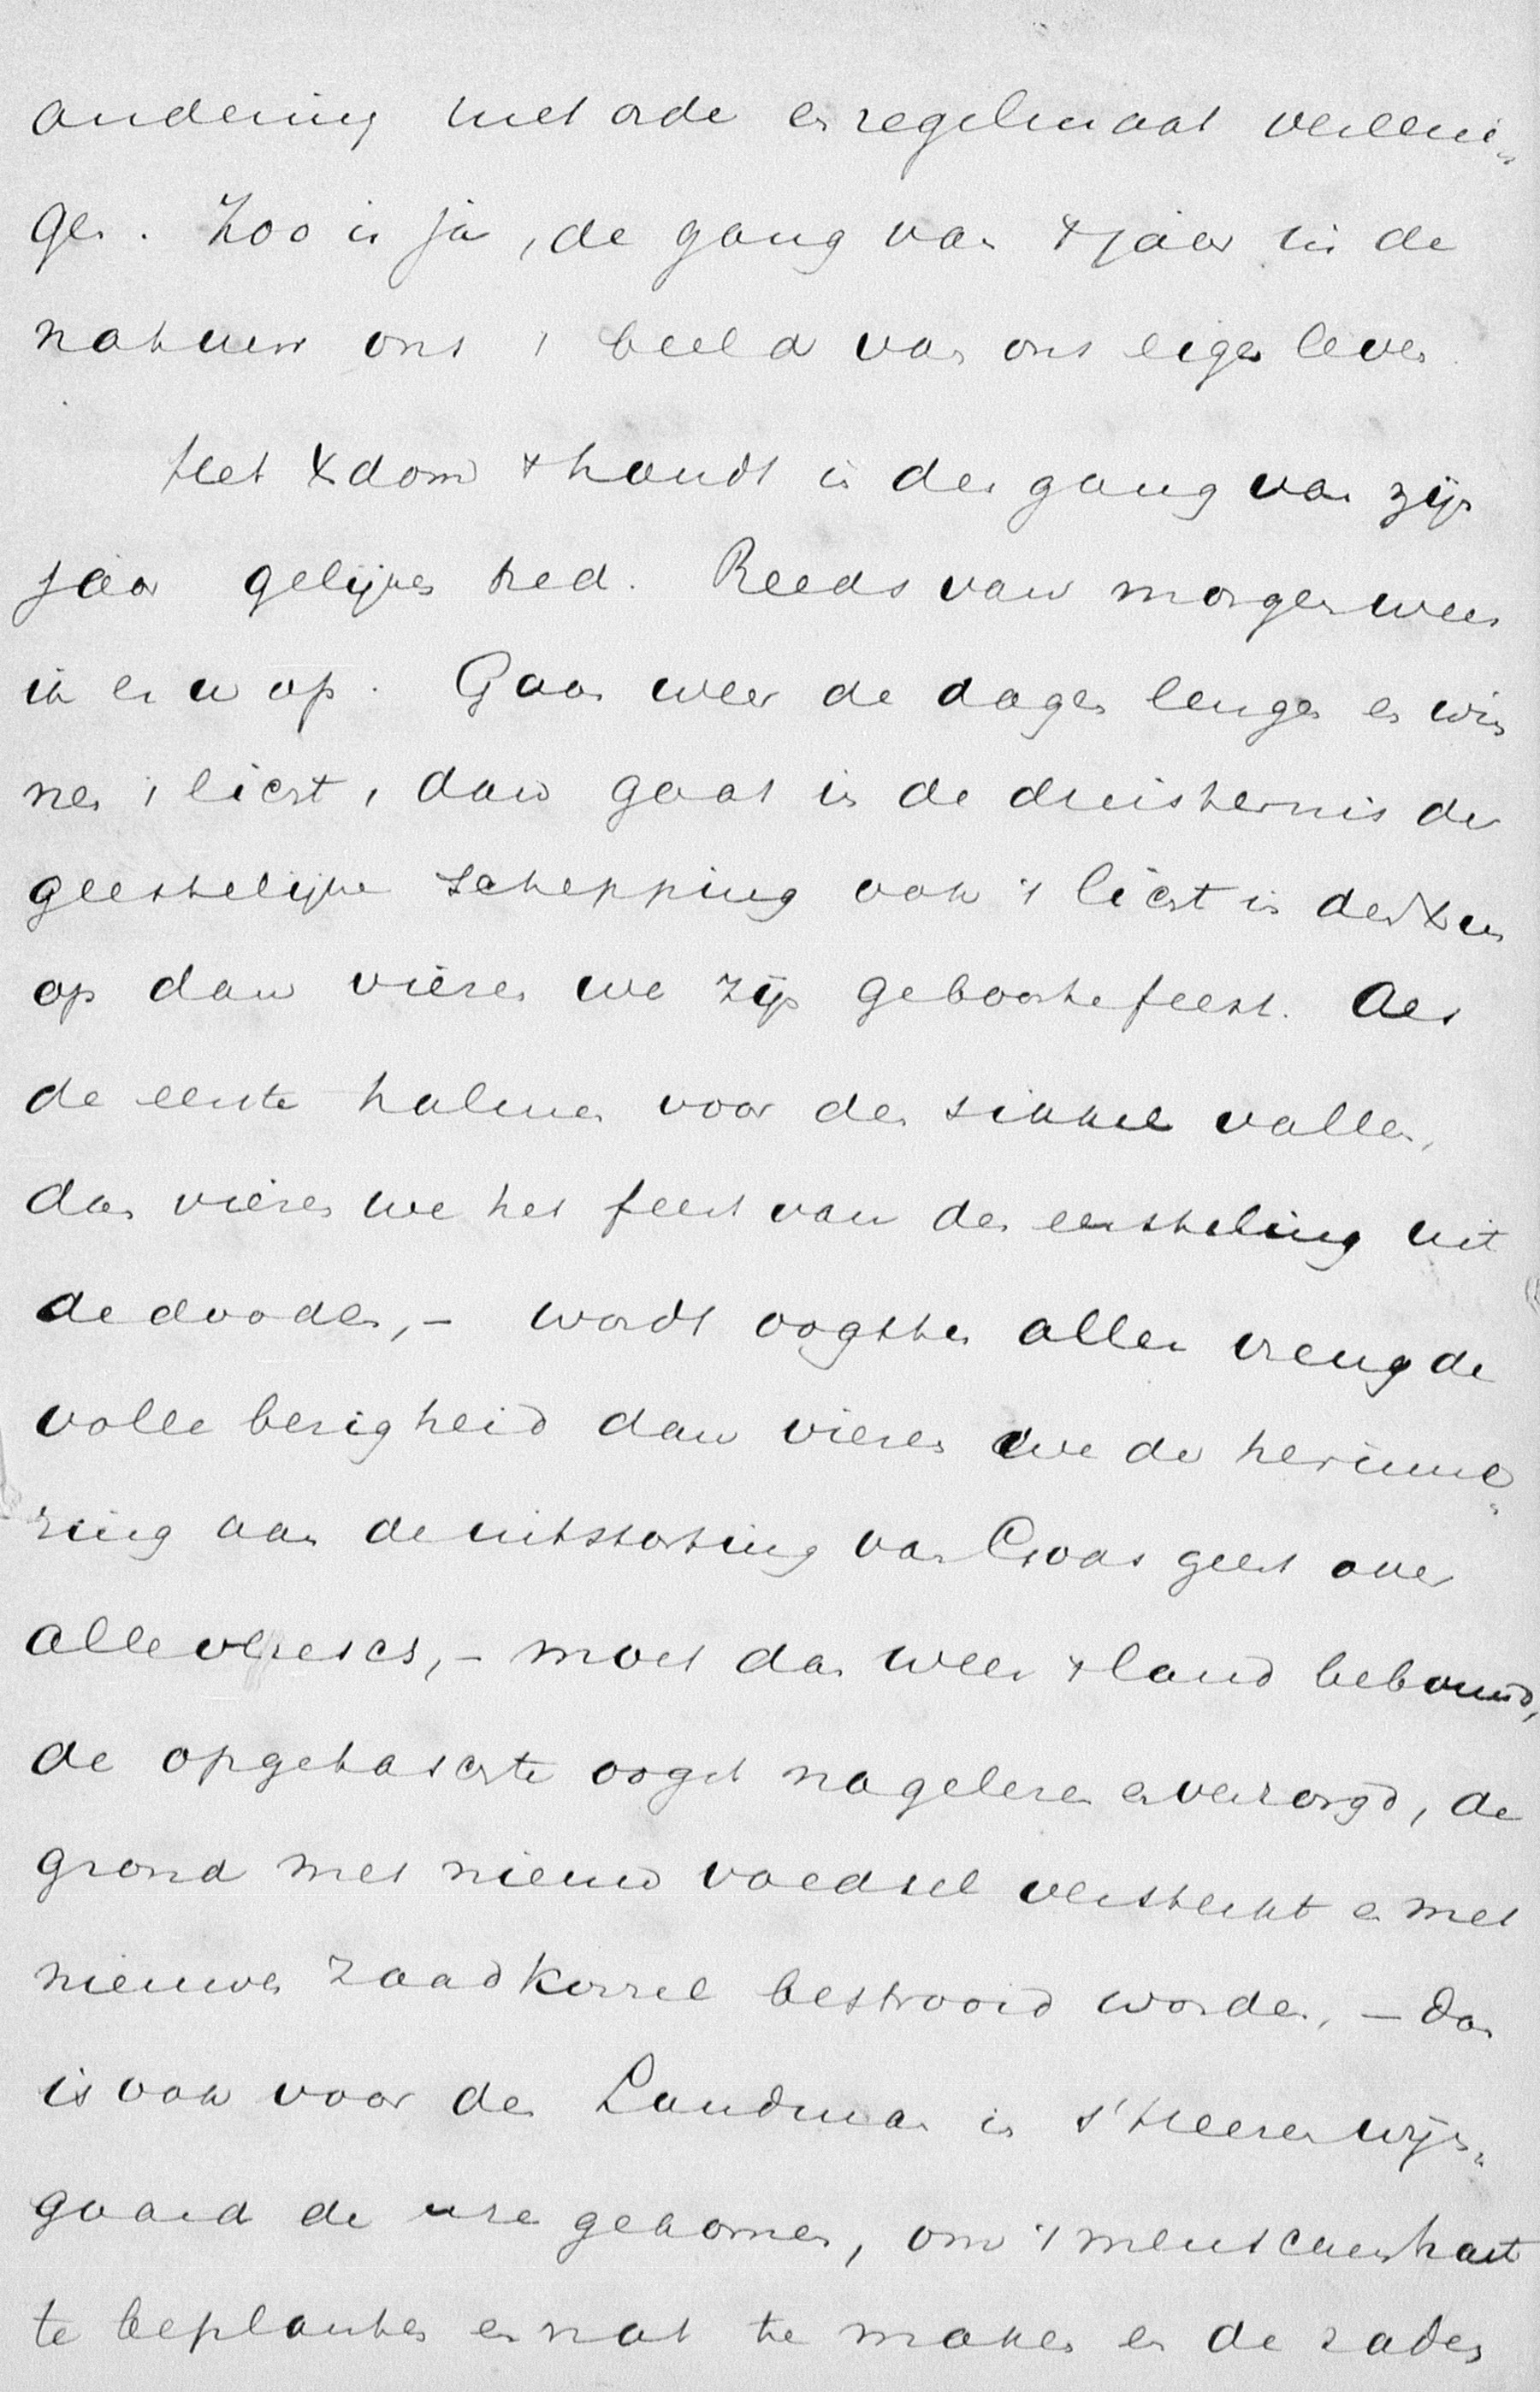 andering met orde en regelmaat vereeni„
gen. Zoo is ja, de gang van 't jaar in de
natuur ons 't beeld van ons eigen leven.
Het Xdom +houdt in den gang van zijn
jaar gelijken tred. Reeds van morgen wees
ik er u op. Gaan weer de dagen lengen en win
nen 't licht, dan gaat in de duisternis der
geestelijke schepping ook 't licht in den Xus
op dan vieren we zijn geboortefeest. Als
de eerste halmen voor den sikkel vallen,
dan vieren we het feest van den eersteling uit
de dooden, – wordt oogsten aller vreugde
volle bezigheid dan vieren we de herinne„
ring aan de uitstorting van Gods geest over
alle vleesch, – moet dan weer 't land bebouwd,
de opgetaschte oogst nagelezen en verzorgd, de
grond met nieuw voedsel versterkt en met
nieuwen zaadkorrel bestrooid worden, – dan
is ook voor den Landman in s'Heeren wijn„
gaard de ure gekomen, om 't menschenhart
te beplanten en nat te maken en de zaden